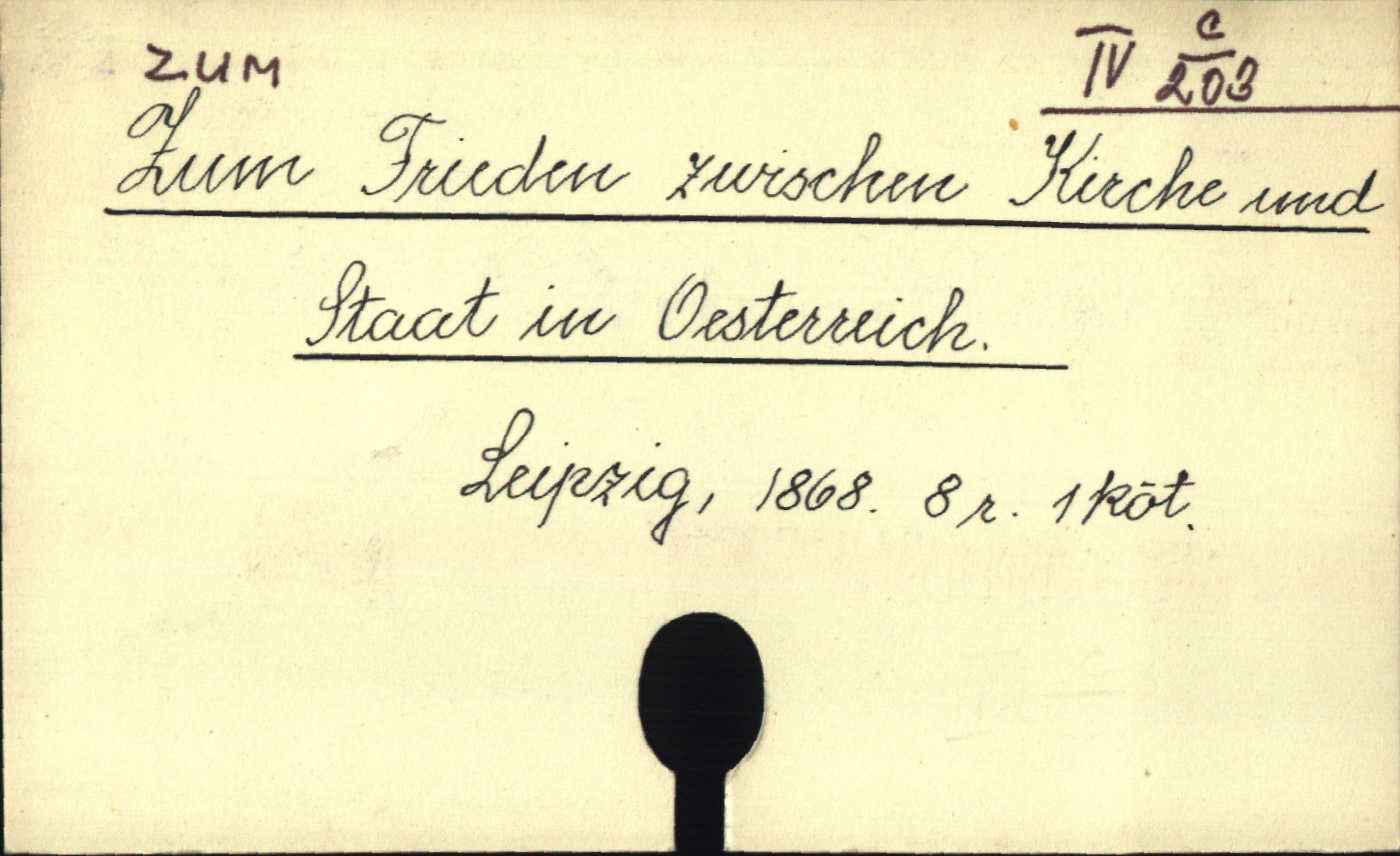 ZUM
IV c/203
Zum Frieden zwischen Kirche und
Staat in Oesterreich.
Leipzig, 1868. 8 r. 1 köt.